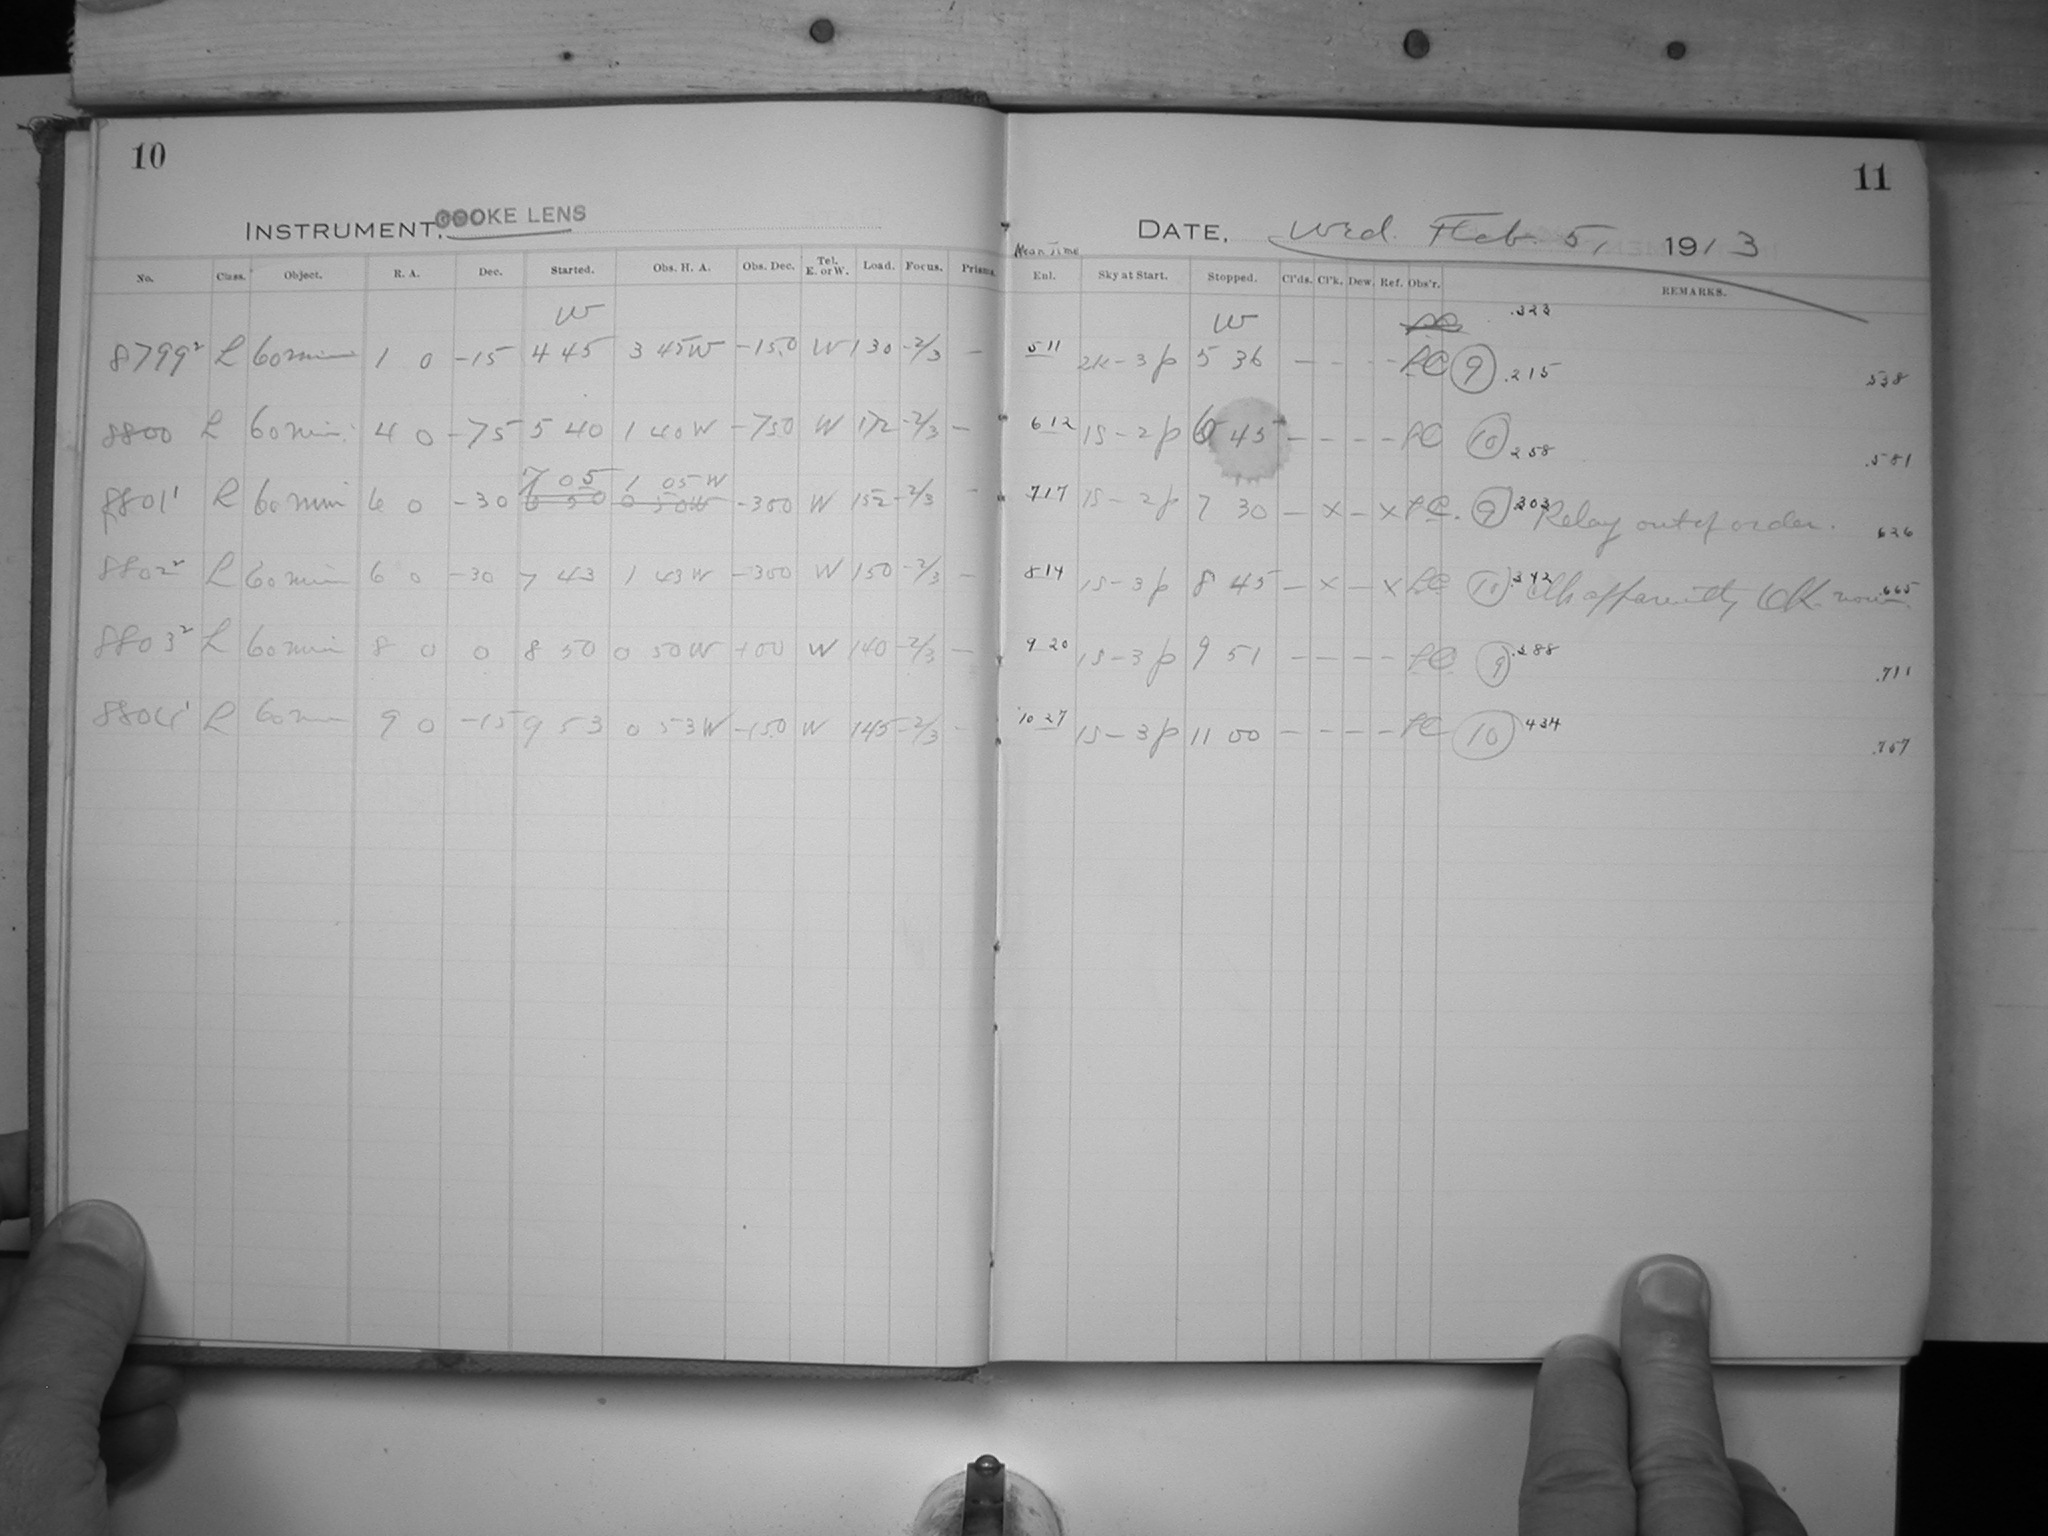 10
11
INSTRUMENT, COOKE LENS
DATE, Wed. Feb. 5, 1913
No. Class. Object. R. A. Dec. Started. Obs. H. A. Obs. Dec. Tel. E. or W. Load. Focus. Prisms.
Mean Time
Enl. Sky at Start. Stopped. Cl'ds. Cl'k. Dew. Ref. Obs'r. REMARKS.
W W .323
8799² L 60 min 1 0 -15 4 45 3 45 W -15.0 W 130 -2/3 — 5 11 2k-3p 5 36 — - - - 9 .215 .538
8800 L 60 min. 4 0 -75 5 40 1 40 W -750 W 172 -2/3 — 6 12 1S-2p 6 45 — — — — 10 .258 .581
7 05 1 05 W
8801¹ L 60 min 6 0 -30 6 50 0 50 W -300 W 152 -2/3 - 7 17 1S-2p 7 30 — x — x 9 .303 Relay out of order. .626
8802² L 60 min 6 0 -30 7 43 1 43 W -300 W 150 -2/3 — 8 14 1S-3p 8 45 — x — x 10 .342 apparently OK now. .665
8803² L 60 min 8 0 0 8 50 0 50 W +00 W 140 -2/3 — 9 20 1S-3p 9 51 — — — — 9 .388 .711
8804¹ L 60 min 9 0 -15 9 53 0 53 W -15.0 W 145 -2/3 — 10 27 1S-3p 11 00 — — — — 10 .434 .757